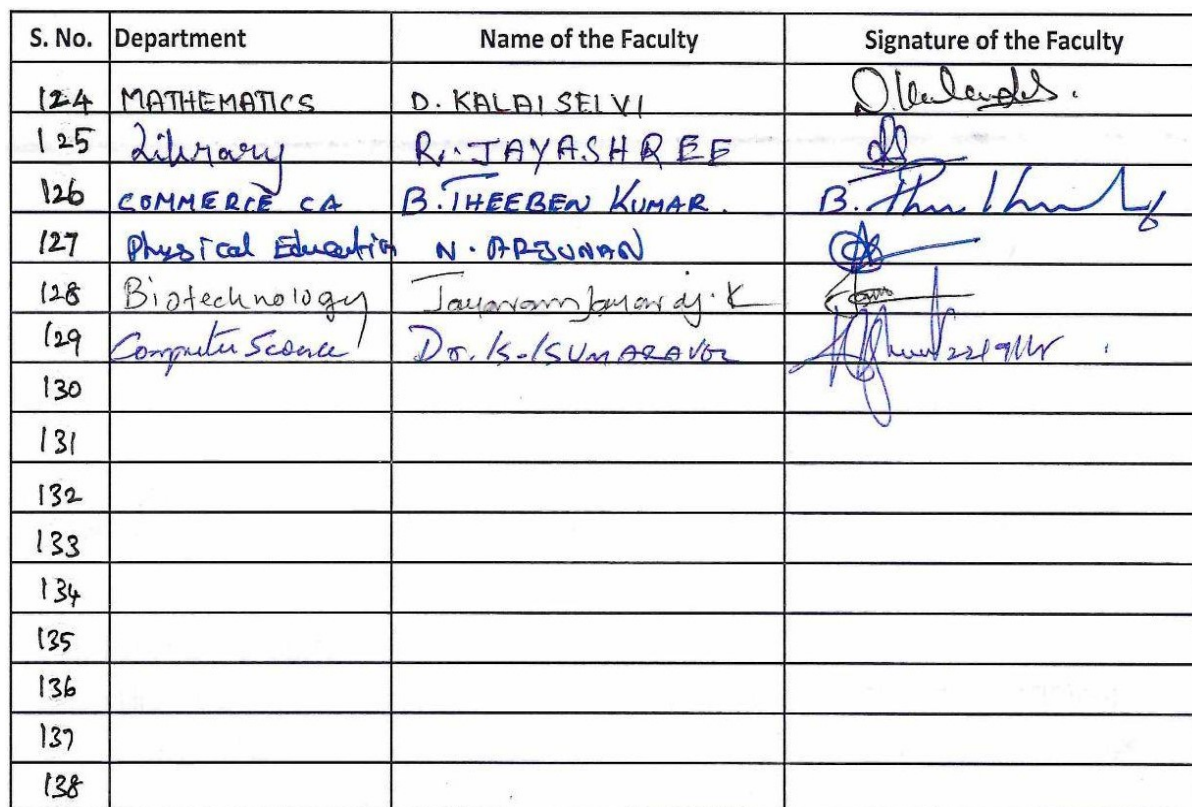 S. No. Department Name of the Faculty Signature of the Faculty
124 MATHEMATICS D. KALAISELVI
125 Library R. JAYASHREE
126 COMMERCE CA B. THEEBEN KUMAR. B.
127 Physical Education N. ARJUNAN
128 Biotechnology Jayaram Jayaraj. K
129 Computer Science Dr. K. KUMARAVEL
130
131
132
133
134
135
136
137
138